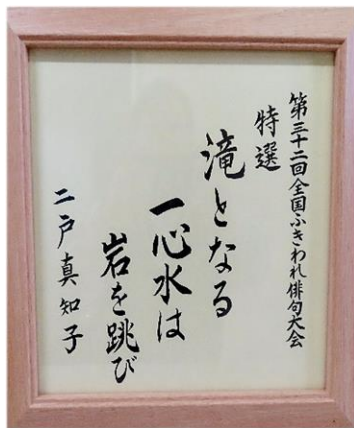 第三十二回全国ふきわれ俳句大会
特選
滝となる
一心水は
岩を跳び
二戸真知子